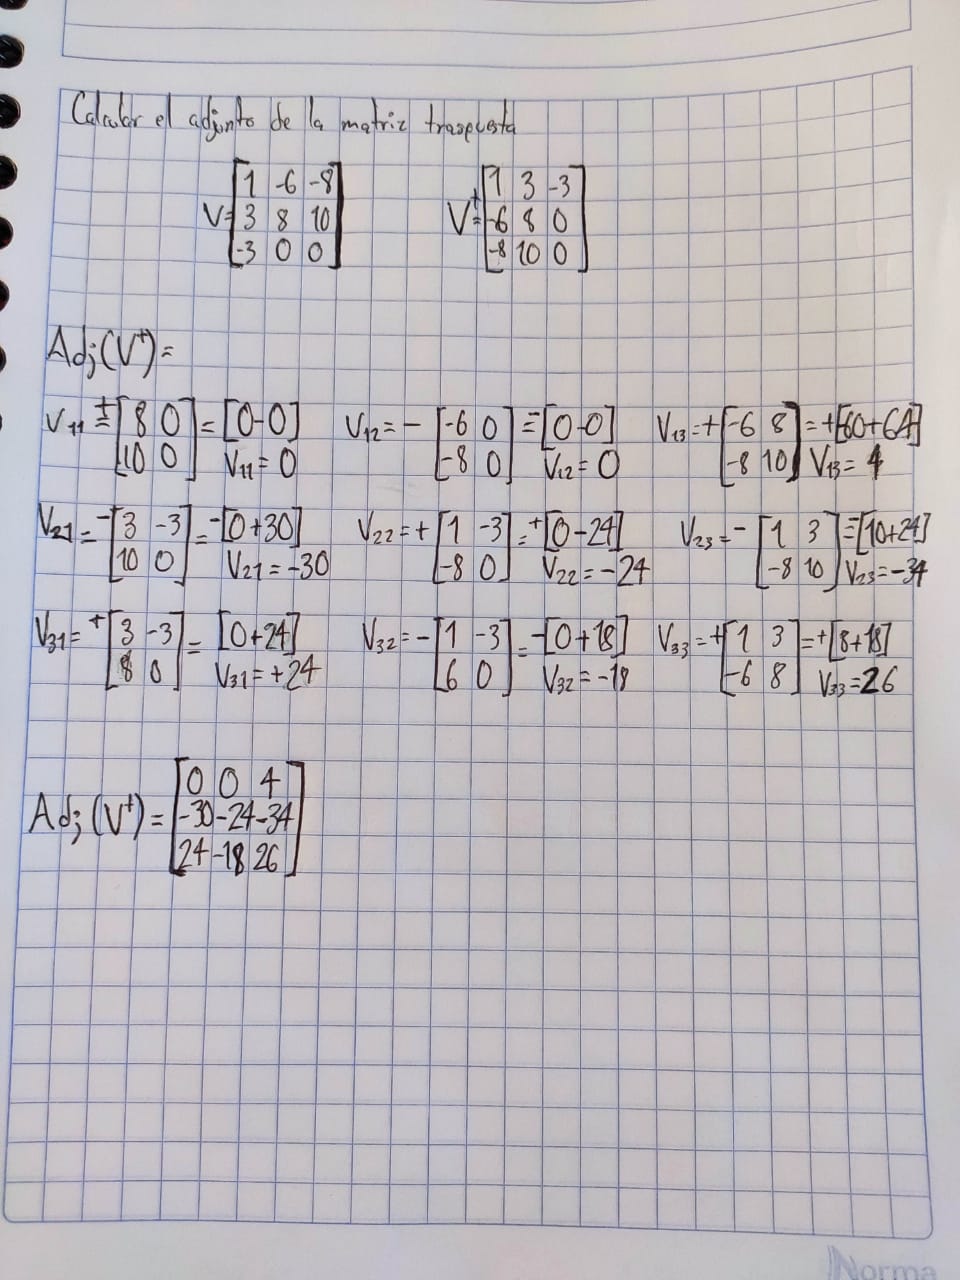 Calcular el adjunto de la matriz traspuesta
V= [1 -6 -8
3 8 10
-3 0 0]
V^t= [1 3 -3
-6 8 0
-8 10 0]
Adj(V^t)=
V11 =+[8 0
10 0] = [0-0]
V11= 0
V12= -[-6 0
-8 0] =-[0-0]
V12= 0
V13=+[-6 8
-8 10] =+[-60+64]
V13= 4
V21=-[3 -3
10 0] =-[0+30]
V21=-30
V22=+[1 -3
-8 0] =+[0-24]
V22=-24
V23=-[1 3
-8 10] =-[10+24]
V23=-34
V31=+[3 -3
8 0] = [0+24]
V31=+24
V32=-[1 -3
6 0] =-[0+18]
V32=-18
V33=+[1 3
-6 8] =+[8+18]
V33=26
Adj(V^t)= [0 0 4
-30 -24 -34
24 -18 26]
Norma